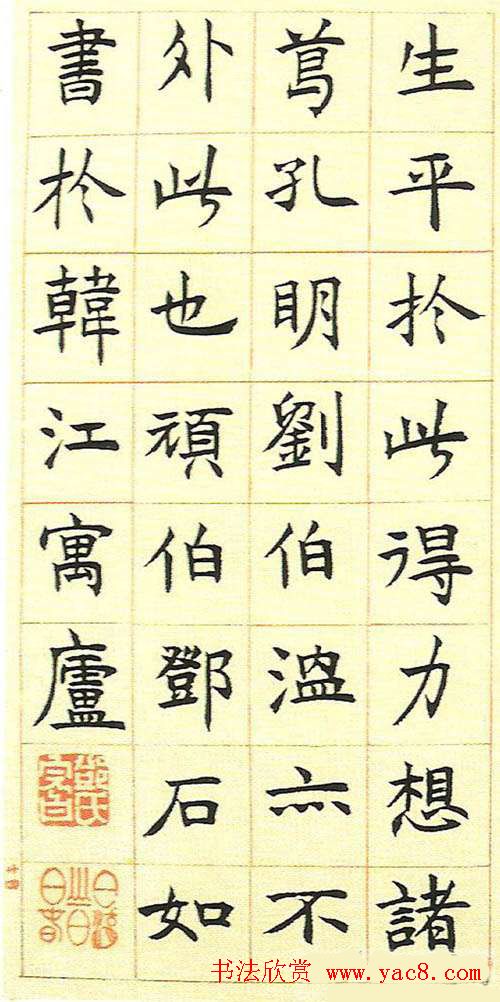 生平扵此得力想諸
葛孔明劉伯溫亦不
外此也頑伯鄧石如
書扵韓江寓廬
十四
书法欣赏 www.yac8.com